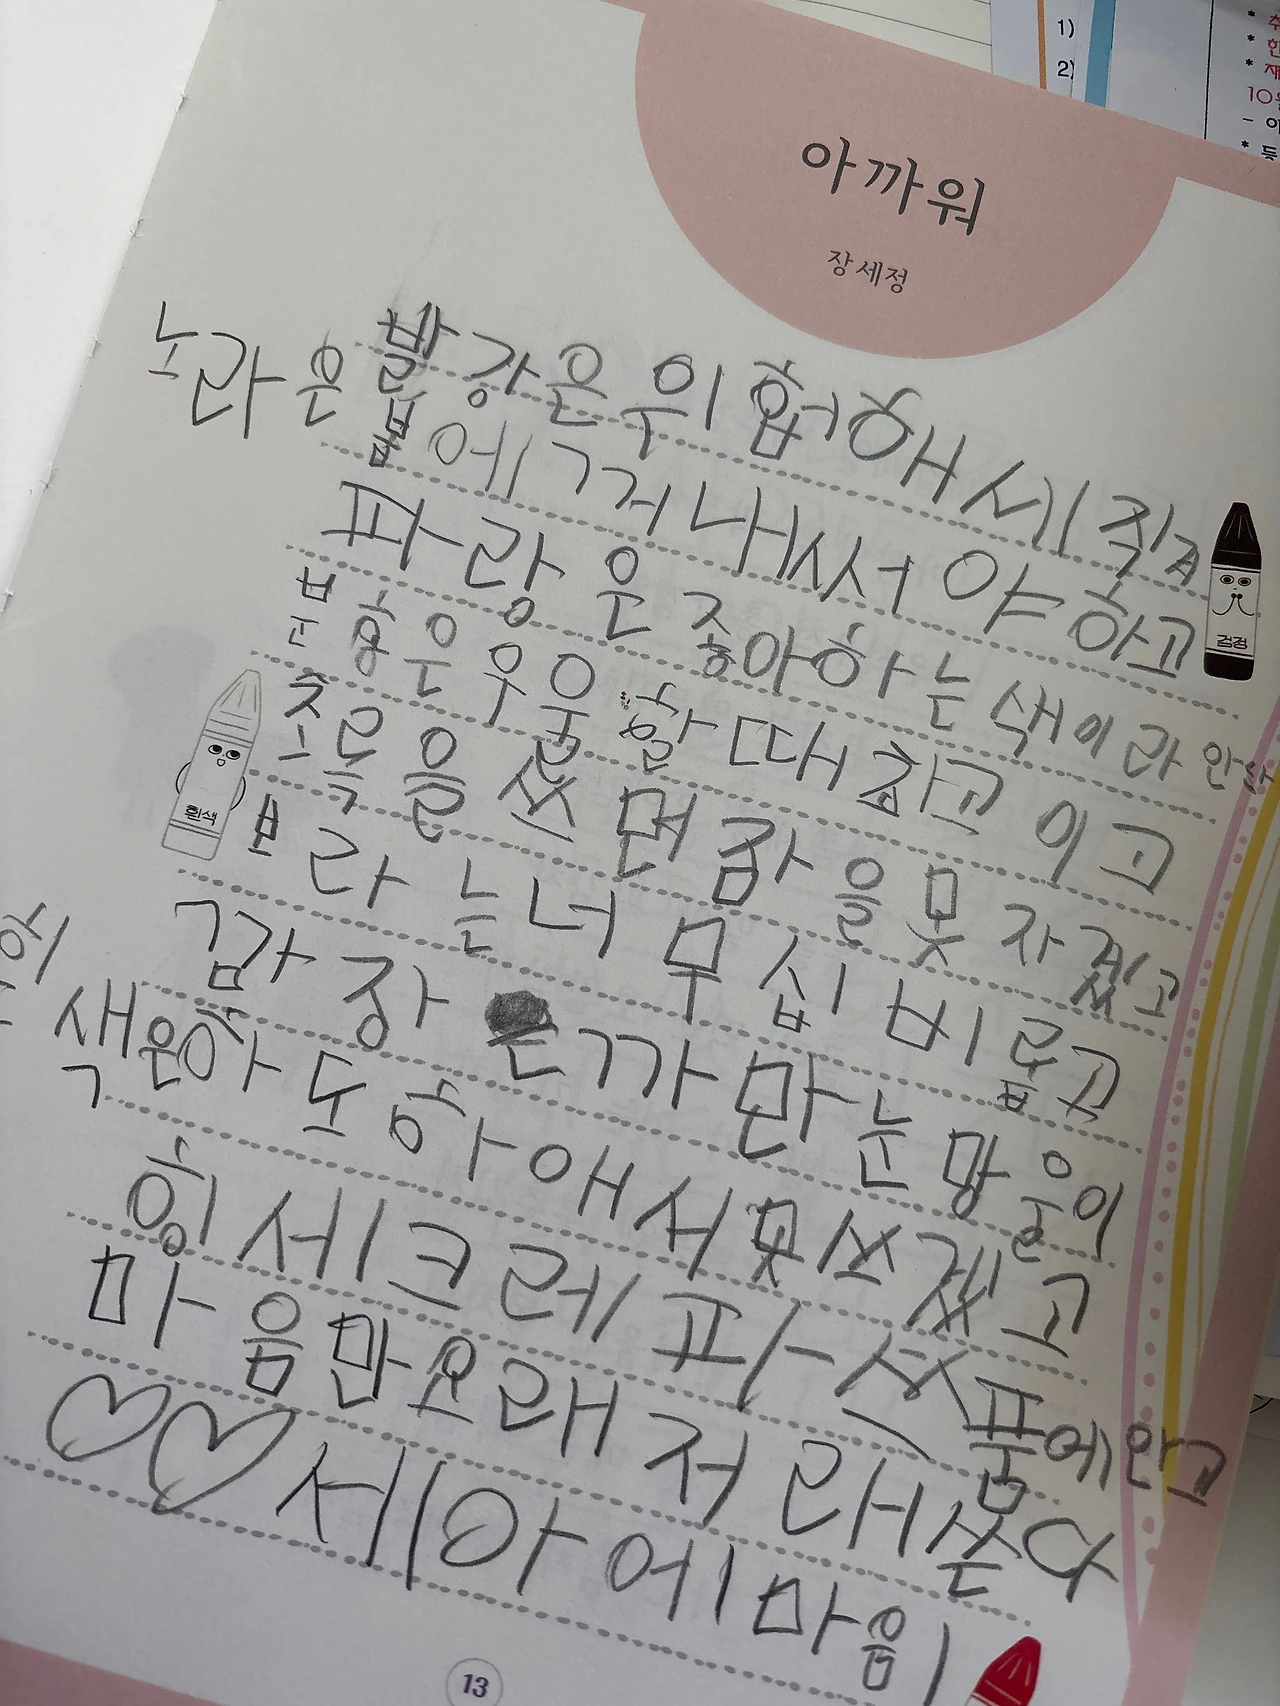 1)
2)
아까워
장세정
빨강은 위험해 세 직겨
노라은 봄에 거 내써야 하고
파랑은 좋아하는 색이라 안
분홍은 우울 할 때 차고 이고
초록을 쓰면 잠을 못 자겠고
보라는 너무 십비롭고
감장은 까만 눈망울이
색은아 도하애서 못 쓰겠고
힁 세 크레파쓰 품에 안고
마음만 요래 저래 쓴다
세아에 마음
검정
흰색
13